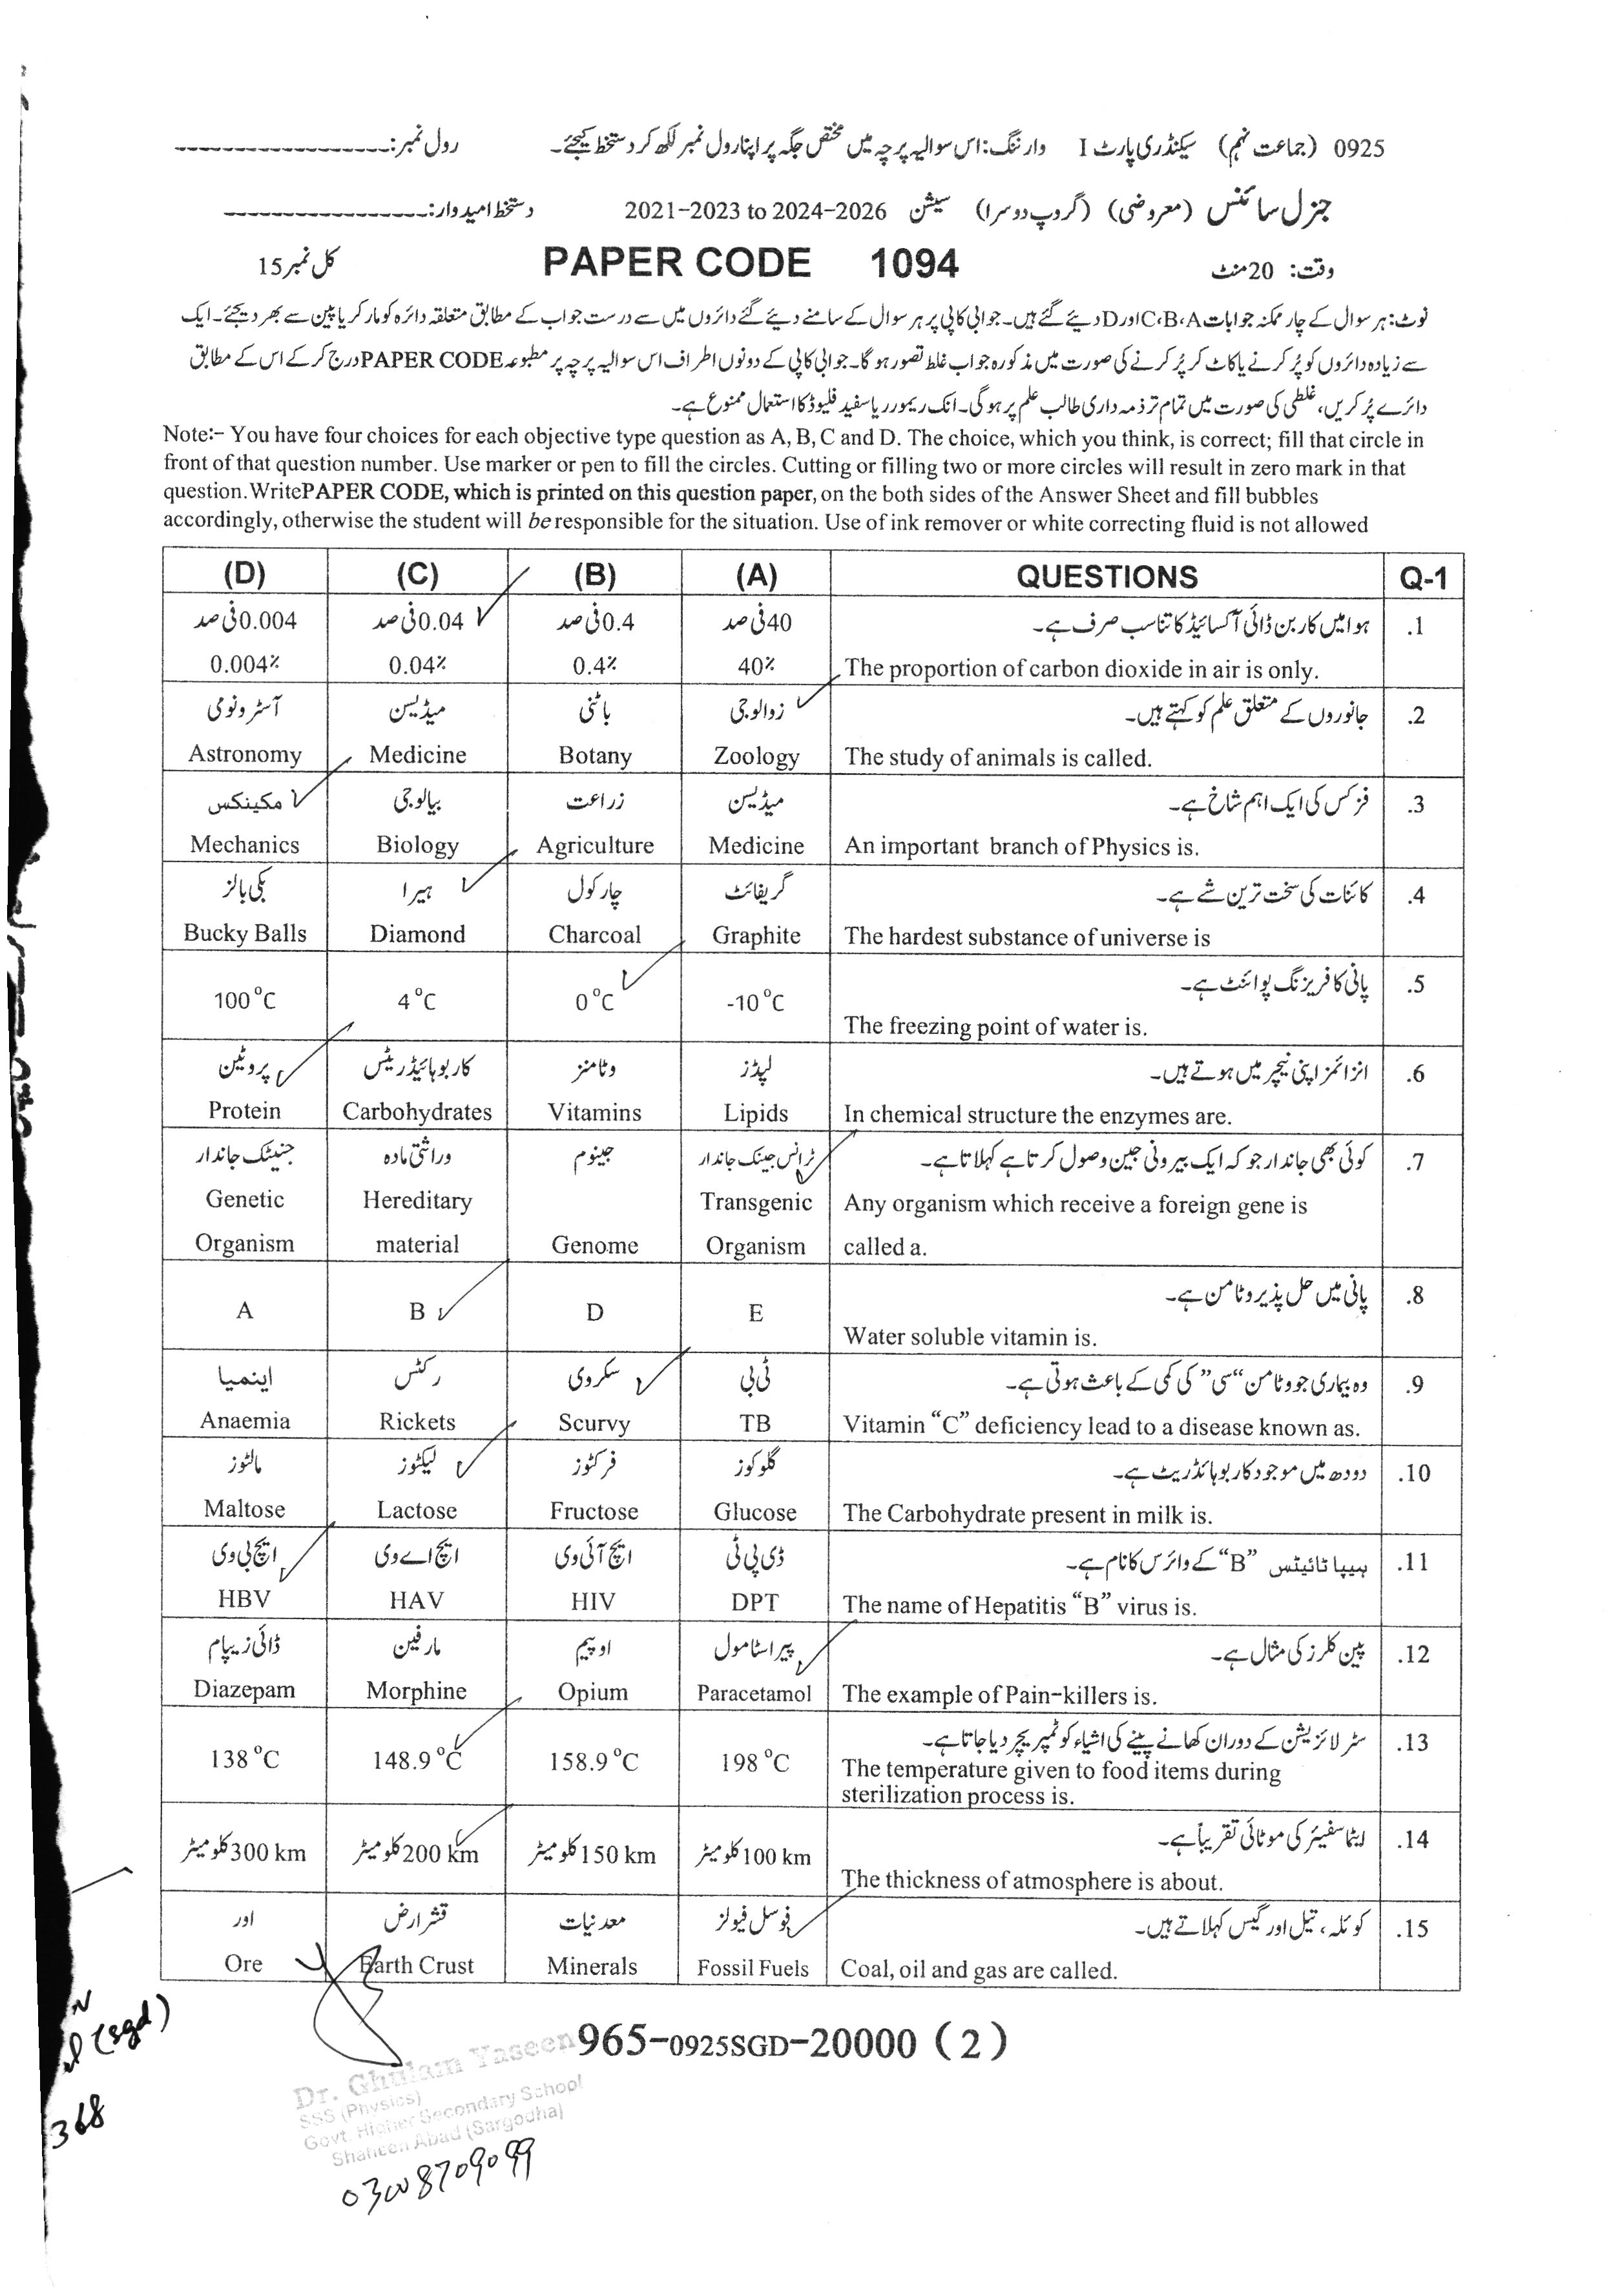 0925 (جماعت نہم) سیکنڈری پارٹ I وارننگ: اس سوالیہ پرچہ میں مختص جگہ پر اپنا رول نمبر لکھ کر دستخط کیجئے۔ رول نمبر:
جنرل سائنس (معروضی) (گروپ دوسرا) سیشن 2021-2023 to 2024-2026 دستخط امیدوار:
وقت: 20 منٹ PAPER CODE 1094 کل نمبر 15
نوٹ: ہر سوال کے چار ممکنہ جوابات A، B، C اور D دیئے گئے ہیں۔ جوابی کاپی پر ہر سوال کے سامنے دیئے گئے دائروں میں سے درست جواب کے مطابق متعلقہ دائرہ کو مارکر یا پین سے بھر دیجئے۔ ایک
سے زیادہ دائروں کو پُر کرنے یا کاٹ کر پُر کرنے کی صورت میں مذکورہ جواب غلط تصور ہو گا۔ جوابی کاپی کے دونوں اطراف اس سوالیہ پرچہ پر مطبوعہ PAPER CODE درج کر کے اس کے مطابق
دائرے پُر کریں، غلطی کی صورت میں تمام تر ذمہ داری طالب علم پر ہو گی۔ انک ریمورر یا سفید فلیوڈ کا استعمال ممنوع ہے۔
Note:- You have four choices for each objective type question as A, B, C and D. The choice, which you think, is correct; fill that circle in
front of that question number. Use marker or pen to fill the circles. Cutting or filling two or more circles will result in zero mark in that
question. Write PAPER CODE, which is printed on this question paper, on the both sides of the Answer Sheet and fill bubbles
accordingly, otherwise the student will be responsible for the situation. Use of ink remover or white correcting fluid is not allowed
(D) (C) (B) (A) QUESTIONS Q-1
0.004 فی صد 0.04 فی صد 0.4 فی صد 40 فی صد ہوا میں کاربن ڈائی آکسائیڈ کا تناسب صرف ہے۔ .1
0.004% 0.04% 0.4% 40% The proportion of carbon dioxide in air is only.
آسٹرونومی میڈیسن باٹنی زوالوجی جانوروں کے متعلق علم کو کہتے ہیں۔ .2
Astronomy Medicine Botany Zoology The study of animals is called.
مکینکس بیالوجی زراعت میڈیسن فزکس کی ایک اہم شاخ ہے۔ .3
Mechanics Biology Agriculture Medicine An important branch of Physics is.
بکی بالز ہیرا چارکول گریفائٹ کائنات کی سخت ترین شے ہے۔ .4
Bucky Balls Diamond Charcoal Graphite The hardest substance of universe is
پانی کا فریزنگ پوائنٹ ہے۔ .5
100°C 4°C 0°C -10°C The freezing point of water is.
پروٹین کاربوہائیڈریٹس وٹامنز لپڈز انزائمز اپنی نیچر میں ہوتے ہیں۔ .6
Protein Carbohydrates Vitamins Lipids In chemical structure the enzymes are.
جنیٹک جاندار وراثتی مادہ جینوم ٹرانس جینک جاندار کوئی بھی جاندار جو کہ ایک بیرونی جین وصول کرتا ہے کہلاتا ہے۔ .7
Genetic Hereditary Transgenic Any organism which receive a foreign gene is
Organism material Genome Organism called a.
پانی میں حل پذیر وٹامن ہے۔ .8
A B D E Water soluble vitamin is.
اینمیا رکٹس سکروی ٹی بی وہ بیماری جو وٹامن “سی” کی کمی کے باعث ہوتی ہے۔ .9
Anaemia Rickets Scurvy TB Vitamin “C” deficiency lead to a disease known as.
مالٹوز لیکٹوز فرکٹوز گلوکوز دودھ میں موجود کاربوہائڈریٹ ہے۔ .10
Maltose Lactose Fructose Glucose The Carbohydrate present in milk is.
ایچ بی وی ایچ اے وی ایچ آئی وی ڈی پی ٹی ہیپاٹائیٹس “B” کے وائرس کا نام ہے۔ .11
HBV HAV HIV DPT The name of Hepatitis “B” virus is.
ڈائی زیپام مارفین اوپیم پیراسٹامول پین کلرز کی مثال ہے۔ .12
Diazepam Morphine Opium Paracetamol The example of Pain-killers is.
سٹرلائزیشن کے دوران کھانے پینے کی اشیاء کو ٹمپریچر دیا جاتا ہے۔ .13
138°C 148.9°C 158.9°C 198°C The temperature given to food items during
sterilization process is.
ایٹماسفیئر کی موٹائی تقریباً ہے۔ .14
300 km کلومیٹر 200 km کلومیٹر 150 km کلومیٹر 100 km کلومیٹر The thickness of atmosphere is about.
اور قشر ارض معدنیات فوسل فیولز کوئلہ، تیل اور گیس کہلاتے ہیں۔ .15
Ore Earth Crust Minerals Fossil Fuels Coal, oil and gas are called.
(sgd)
965-0925SGD-20000 (2)
Dr. Ghulam Yaseen
SSS (Physics)
Govt. Higher Secondary School
Shaheen Abad (Sargodha)
368
03008709099